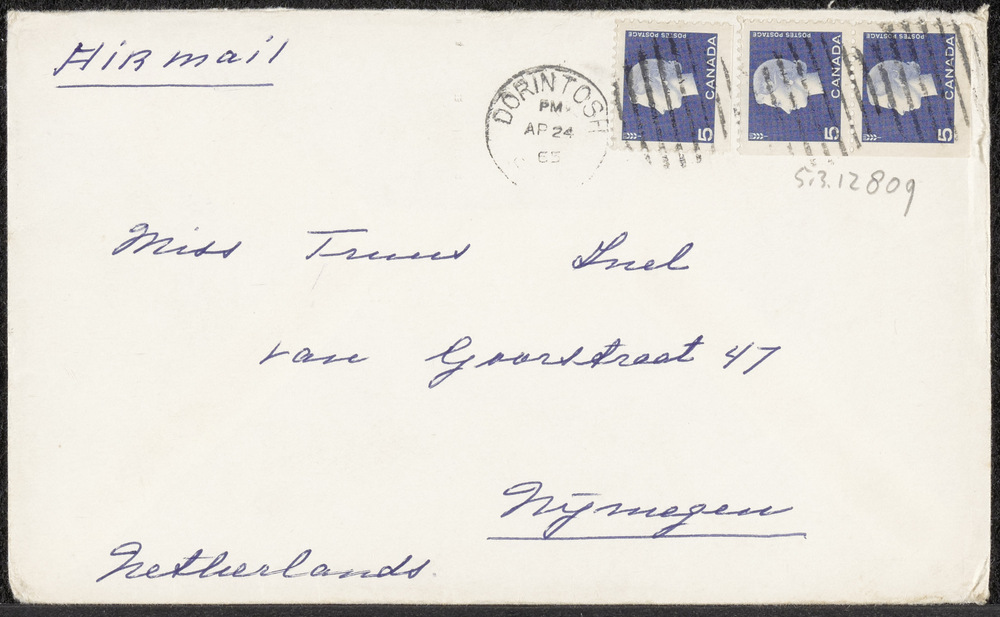 Air mail
POSTES POSTAGE
CANADA
5
POSTES POSTAGE
CANADA
5
POSTES POSTAGE
CANADA
5
DORINTOSH
PM
AP 24
65
5.3.12809
Miss Truus Snel
van Goorstraat 47
Nijmegen
Netherlands.